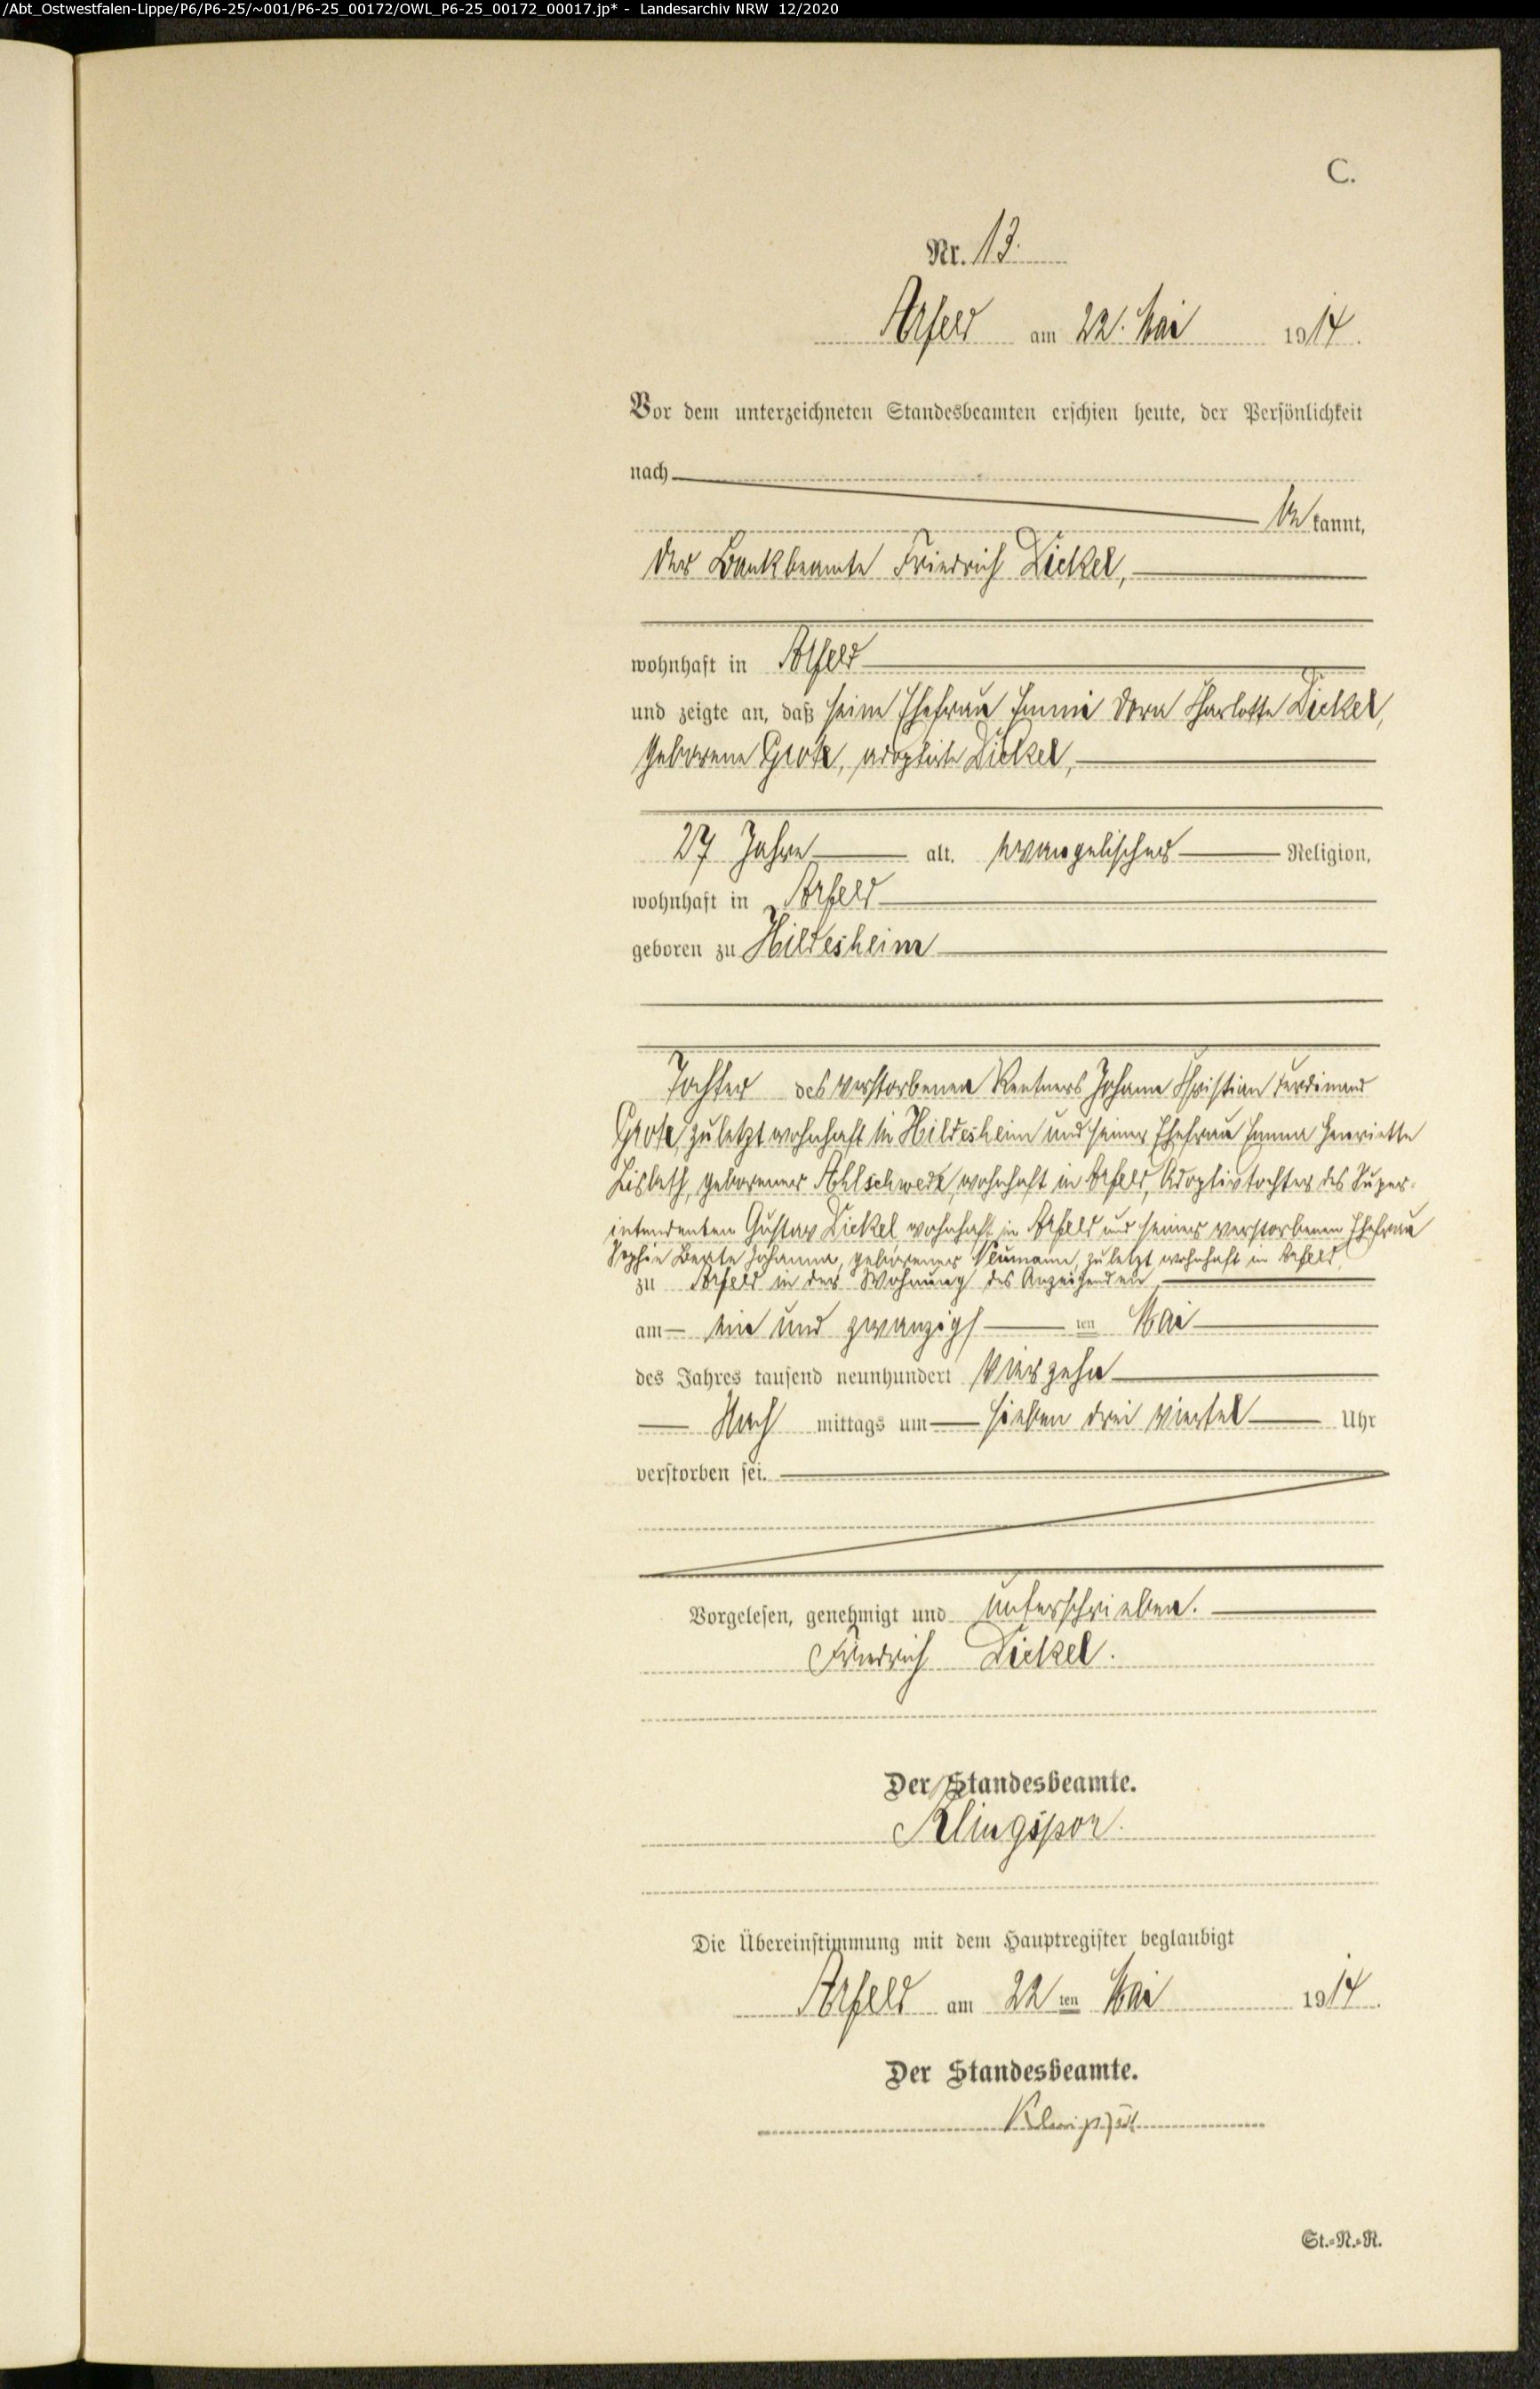 /Abt_Ostwestfalen-Lippe/P6/P6-25/~001/P6-25_00172/OWL_P6-25_00172_00017.jp* - Landesarchiv NRW 12/2020
C.
Nr. 13.
Arfeld am 22. Mai 1914.
Vor dem unterzeichneten Standesbeamten erschien heute, der Persönlichkeit
nach
be kannt,
der Bankbeamte Friedrich Dickel,
wohnhaft in Arfeld
und zeigte an, daß seine Ehefrau Emmi Dora Charlotte Dickel,
geborene Grote, adoptirte Dickel,
27 Jahre alt, evangelischer Religion,
wohnhaft in Arfeld
geboren zu Hildesheim
Tochter des verstorbenen Rentners Johann Christian Ferdinand
Grote, zuletzt wohnhaft in Hildesheim und seiner Ehefrau Emma Henriette
Lisbeth, geborener wohnhaft in Arfeld, Adoptivtochter des Super-
intendenten Gustav Dickel, wohnhaft in Arfeld und seiner verstorbenen Ehefrau
Sophie Johanna, geborener Neumann, zuletzt wohnhaft in Arfeld,
zu Arfeld in der Wohnung des Anzeigenden
am ein und zwanzigs ten Mai
des Jahres tausend neunhundert vierzehn
Nach mittags um sieben drei viertel Uhr
verstorben sei.
Vorgelesen, genehmigt und unterschrieben.
Friedrich Dickel.
Der Standesbeamte.
Klingspor.
Die Übereinstimmung mit dem Hauptregister beglaubigt
Arfeld am 22 ten Mai 1914.
Der Standesbeamte.
St.-N.-R.